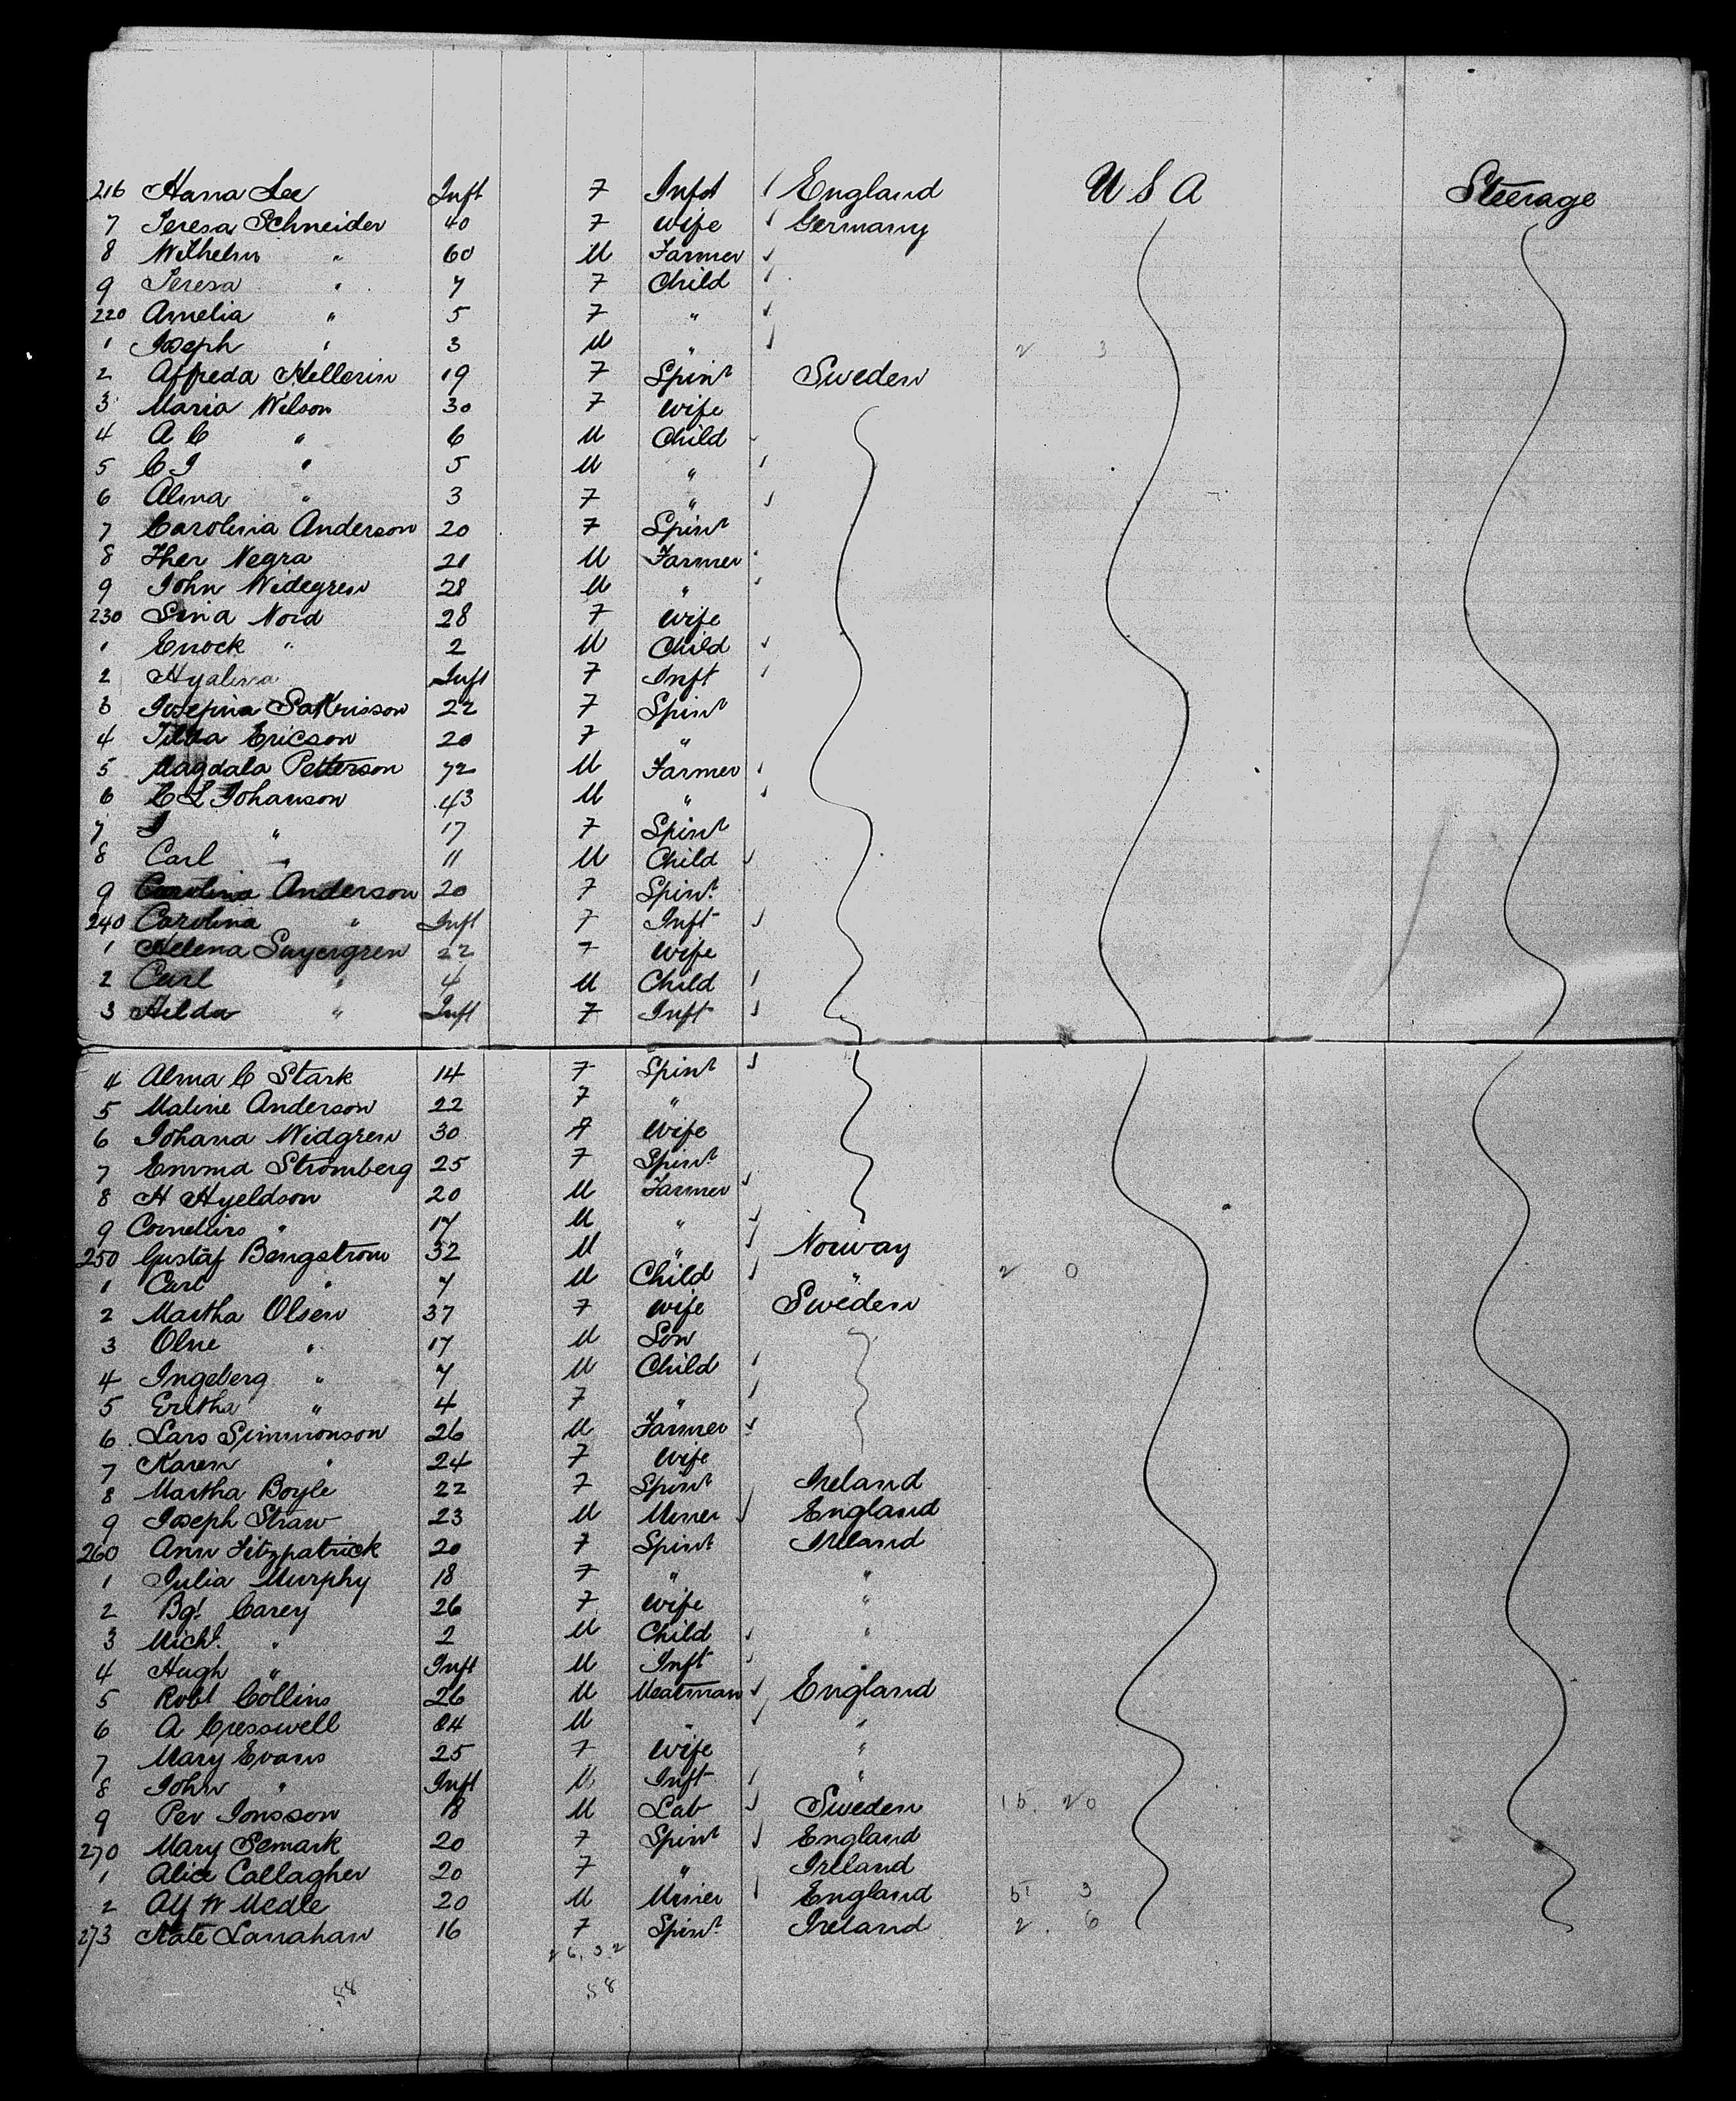 216 Hana Lee Inft F Inft England U S A Steerage
7 Teresa Schneider 40 F Wife Germany
8 Wilhelm " 60 M Farmer
9 Teresa " 7 F Child
220 Amelia " 5 F "
1 Joseph " 3 M " 2 3
2 Alfreda Hellerin 19 F Spinr Sweden
3 Maria Wilson 30 F Wife
4 A C " 6 M Child
5 C J " 5 M "
6 Alma " 3 F "
7 Carolina Anderson 20 F Spinr
8 Ther Negra 21 M Farmer
9 John Widegren 28 M "
230 Sina Nord 28 F Wife
1 Enock " 2 M Child
2 Hyalina Inft F Inft
3 Josefina Sakrisson 22 F Spinr
4 Tilda Ericson 20 F "
5 Magdala Petterson 72 M Farmer
6 C L Johanson 43 M "
7 " 17 F Spinr
8 Carl " 11 M Child
9 Carolina Anderson 20 F Spinr
240 Carolina " Inft F Inft
1 Helena 22 F Wife
2 Carl " 4 M Child
3 Hilda " Inft F Inft
4 Alma C Stark 14 F Spinr
5 Maline Anderson 22 F "
6 Johana Widgren 30 F Wife
7 Emma Stromberg 25 F Spinr
8 H Hyeldson 20 M Farmer
9 Cornelius " 17 M "
250 Gustaf Bengstrom 32 M " Norway
1 Carl " 7 M Child " 2 0
2 Martha Olsen 37 F Wife Sweden
3 Olne " 17 M Son
4 Ingeberg " 7 M Child
5 Eritha " 4 F "
6 Lars Simmonson 26 M Farmer
7 Karen " 24 F Wife
8 Martha Boyle 22 F Spinr Ireland
9 Joseph Straw 23 M Miner England
260 Ann Fitzpatrick 20 F Spinr Ireland
1 Julia Murphy 18 F " "
2 Bgt Carey 26 F Wife "
3 Michl " 2 M Child "
4 Hugh " Inft M Inft "
5 Robt Collins 26 M Meatman England
6 A Cresswell 24 M " "
7 Mary Evans 25 F Wife "
8 John " Inft M Inft "
9 Per Jonsson 18 M Lab Sweden 15 20
270 Mary Semark 20 F Spinr England
1 Alice Callagher 20 F " Ireland
2 Alf W Medle 20 M Miner England 51 3
273 Kate Lanahan 16 F Spinr Ireland 2 6
26.32
58 58